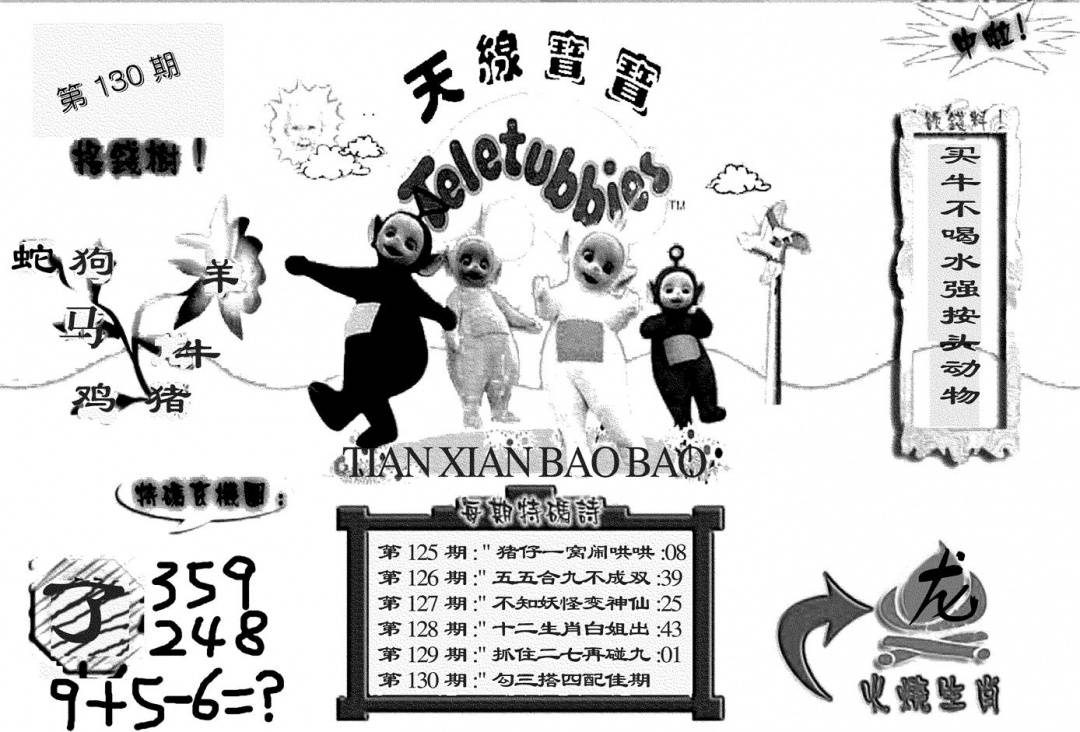 第 130 期
搖錢樹！
蛇 狗
羊
马
牛
鸡 猪
天線寶寶
Teletubbies
TM
TIAN XIAN BAO BAO
中啦！
買牛不喝水强按头动物
特碼玄機圖：
了
359
248
9+5-6=?
每期特碼詩
第 125 期 :" 猪仔一窝闹哄哄 :08
第 126 期 :" 五五合九不成双 :39
第 127 期 :" 不知妖怪变神仙 :25
第 128 期 :" 十二生肖白姐出 :43
第 129 期 :" 抓住二七再碰九 :01
第 130 期 :" 勾三搭四配佳期
龙
火燒生肖